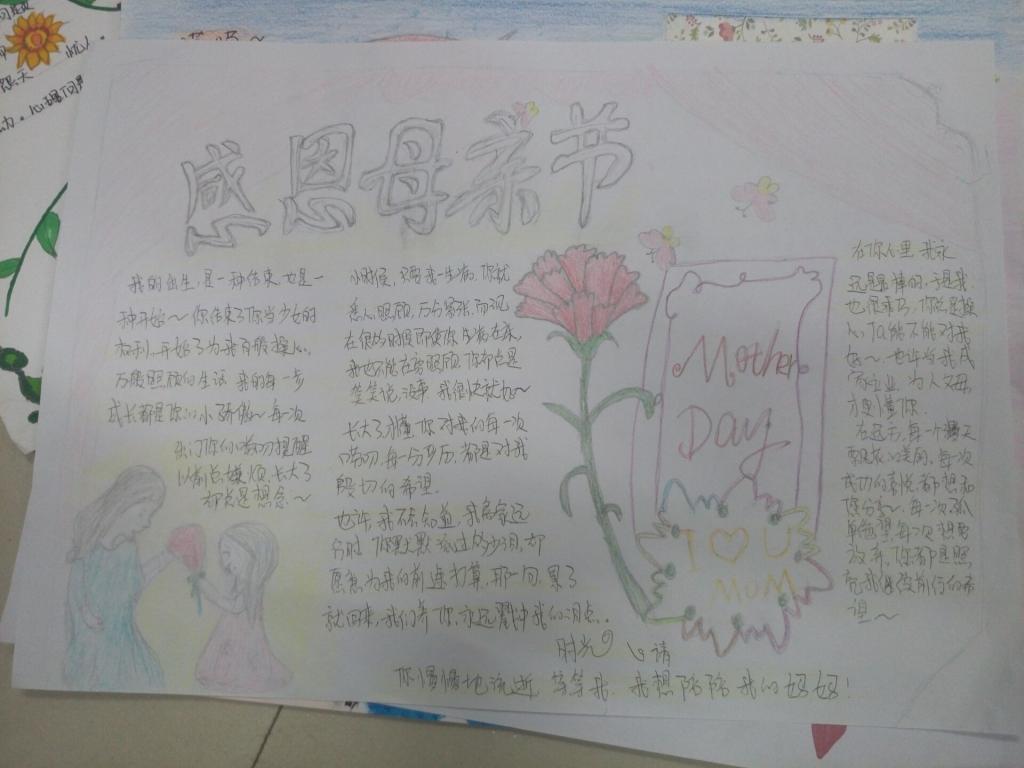 感恩母亲节
我的出生,是一种结束也是一
种开始~你结束了你当少女的
权利,开始了为我百般操心,
万般照顾的生活 我的每一步
成长都是你的小骄傲~每次
你的唠叨提醒
以前总嫌烦,长大了
却总是想念~
小时候,只要我一生病,你就
悉心照顾,万分紧张,而现
在很多时候即使你生病在床,
我也不能在旁照顾,你却总是
笑笑说,没事 我很快就好~
长大了,才懂,你对我的每一次
唠叨,每一分严厉,都是对我
殷切的希望.
也许,我不知道,我离家远
行时 你默默流过多少泪,却
愿意为我的前途打算,那一句,累了
就回来,我们养你,永远戳中我们的泪点..
时光 请
你慢慢地流逝 等等我,我想陪陪我们妈妈!
Mother
Day
I U
MOM
在你心里 我永
远是最棒的,于是我
也很乖巧,你总是操
心,TA能不能对我
好~也许当我成
家立业,为人父母
才更懂你.
在远方,每一个
成功的喜悦都想和
你分享~每一次孤
放弃,你都是照
亮我继续前行的希
望~